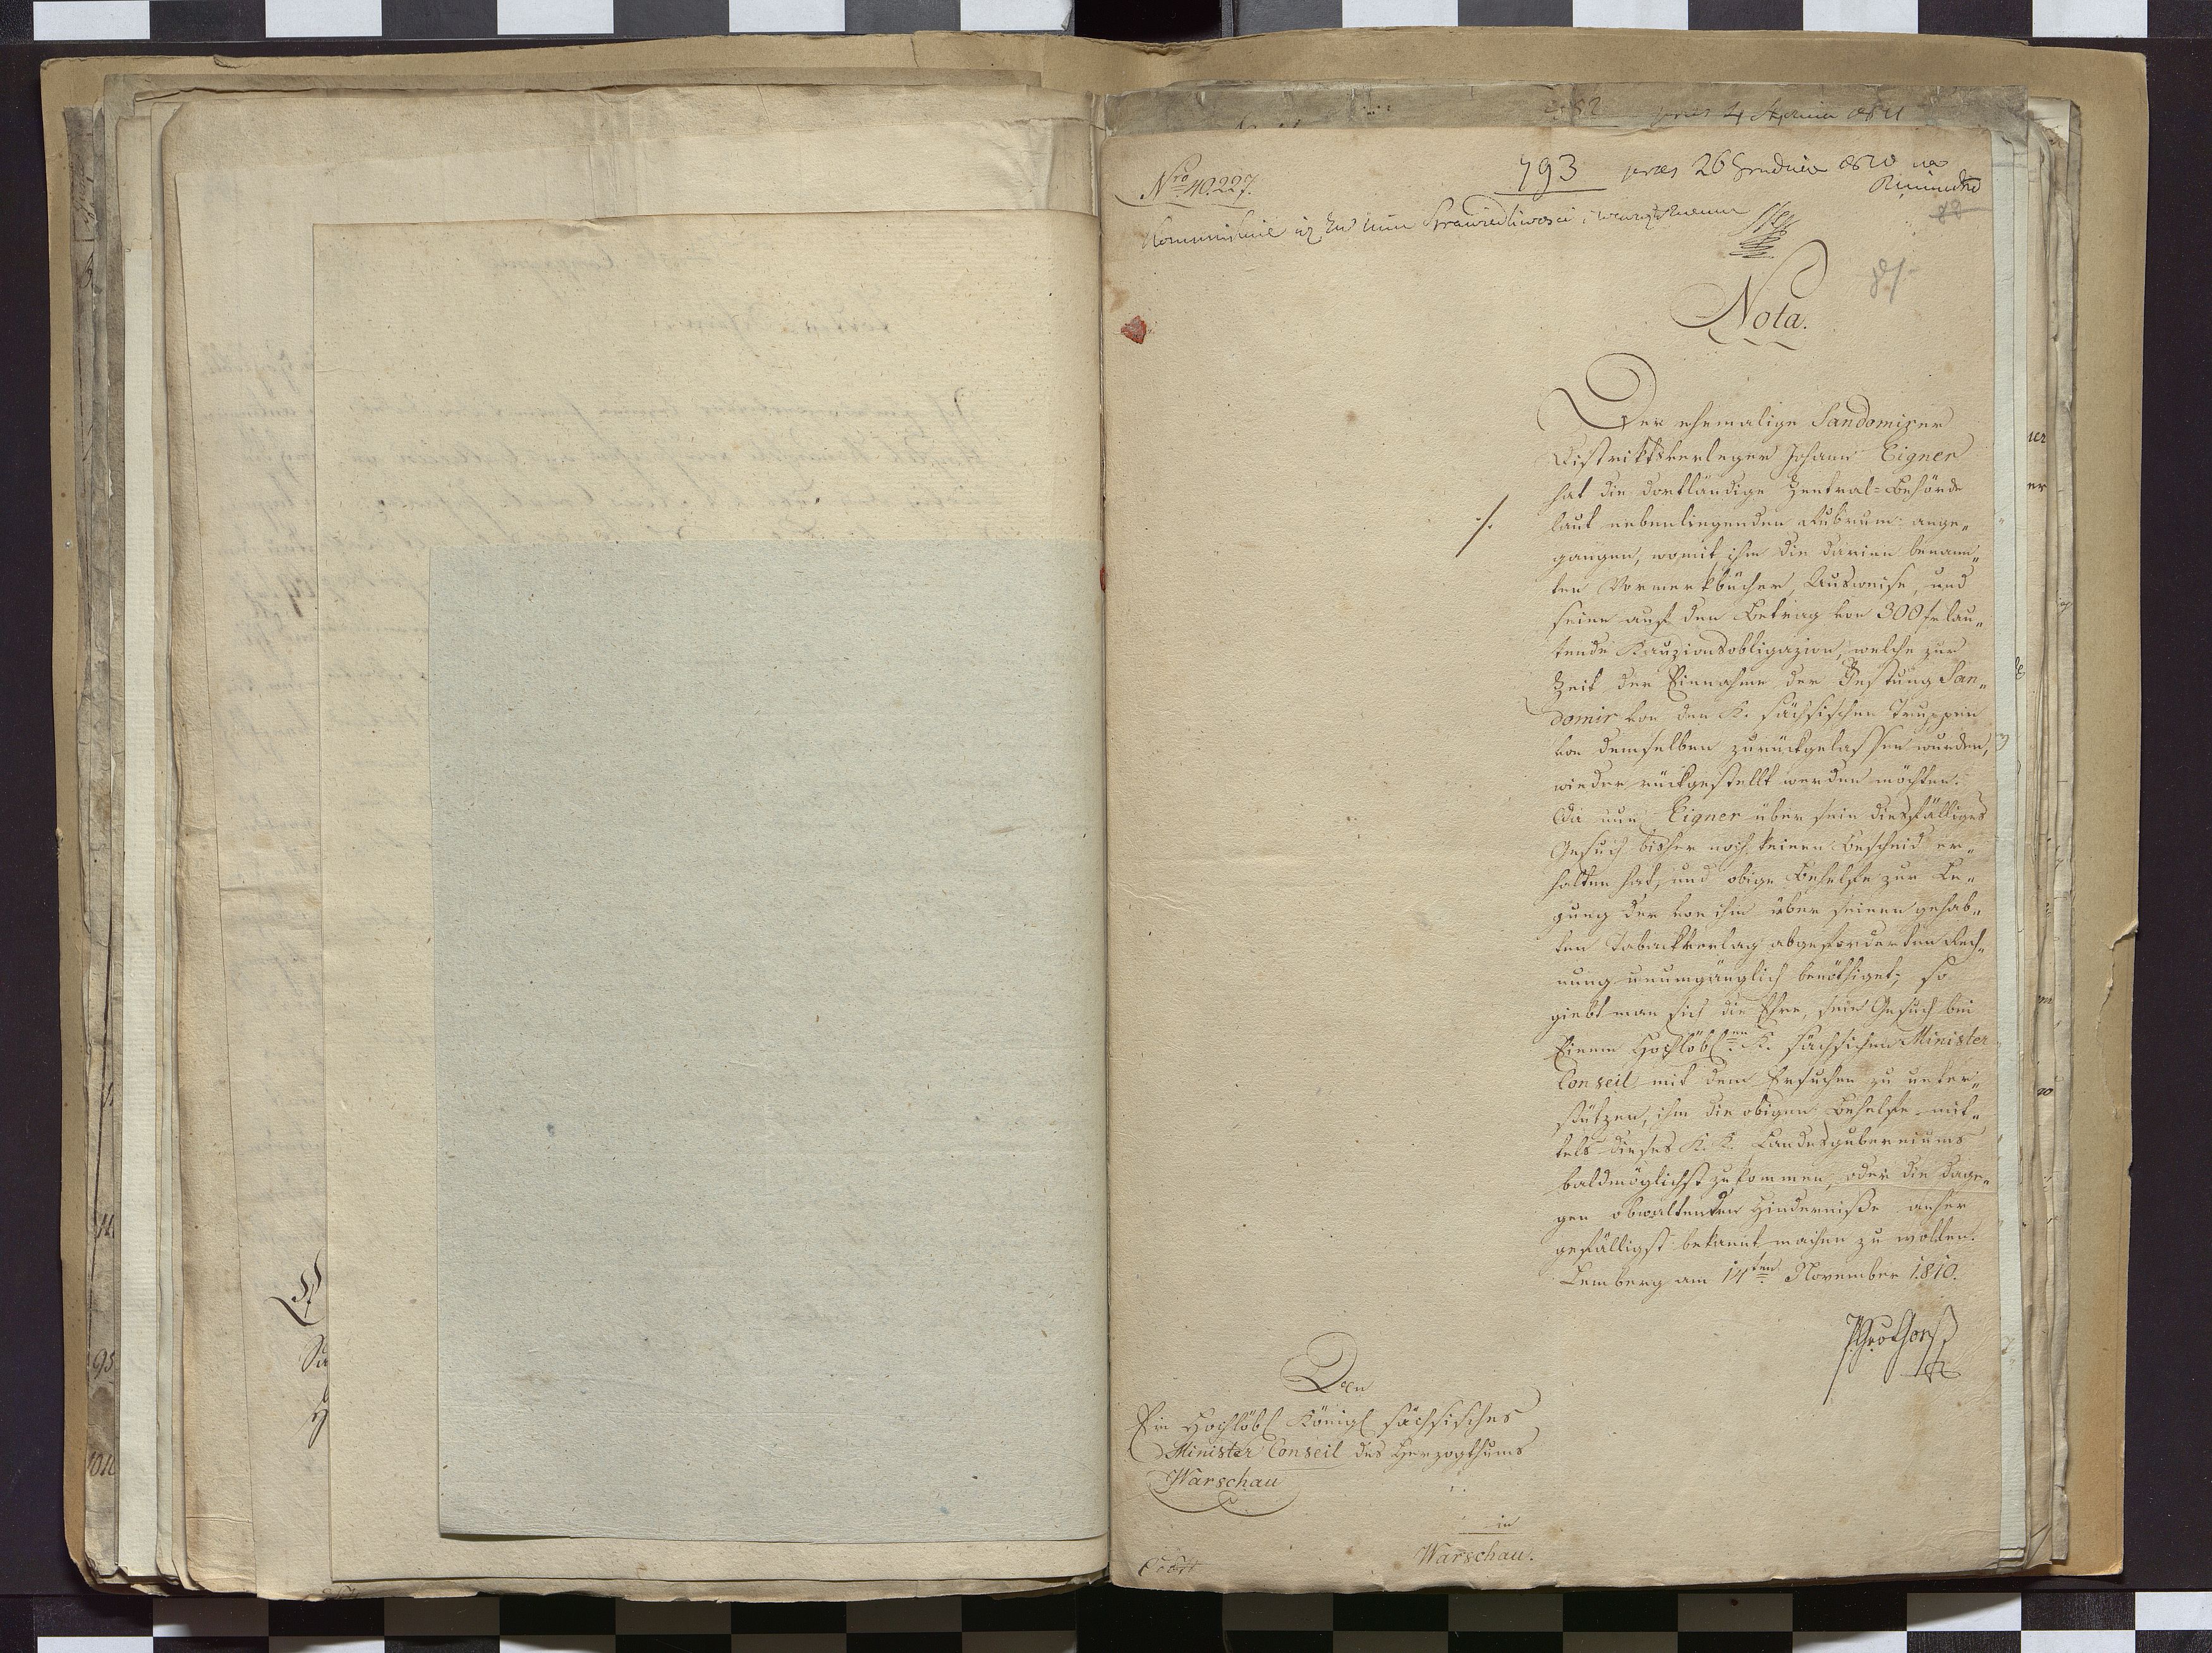 Nro 40.227.
793 pres 26 Grudnia 1810
Sprawiedliwości i wewnętrznemu
Nota.
Der ehemalige Sandomirer
Distriktsverleger Johann Eigner
hat die dortländige Zentral-Behörde
·/.
laut nebenliegenden Rubrum ange„
gangen, womit ihm die darinn benann„
ten Vormerkbücher, Ausweise, und
seine auf den Betrag von 300 fr lau„
tende Kauzionsobligazion, welche zur
Zeit der Einnahme der Festung San„
domir von den K. sächsischen Truppen
von demselben zurückgelassen wurden,
wieder rückgestellt werden möchten.
Da nun Eigner über sein diesfälliges
Gesuch bisher noch keinen Bescheid er„
halten hat, und obige Behelfe zur Le„
gung der von ihm über seinen gehab„
ten Tabackverlag abgeforderten Rech„
nung unumgänglich benöthiget; so
giebt man sich die Ehre, sein Gesuch bei
Einem Hochlöbl.en K. sächsischen Minister
Conseil mit dem Ersuchen zu unter„
stützen, ihm die obigen Behelfe mit„
tels dieses K. K. Landesguberniums
baldmöglichst zukommen, oder die dage„
gen obwaltenden Hinderniße anher
gefälligst bekannt machen zu wollen.
Lemberg am 14ten November 1810.
An
Ein Hochlöbl Königl sächsisches
Minister Conseil des Herzogthums
Warschau
in
Warschau.